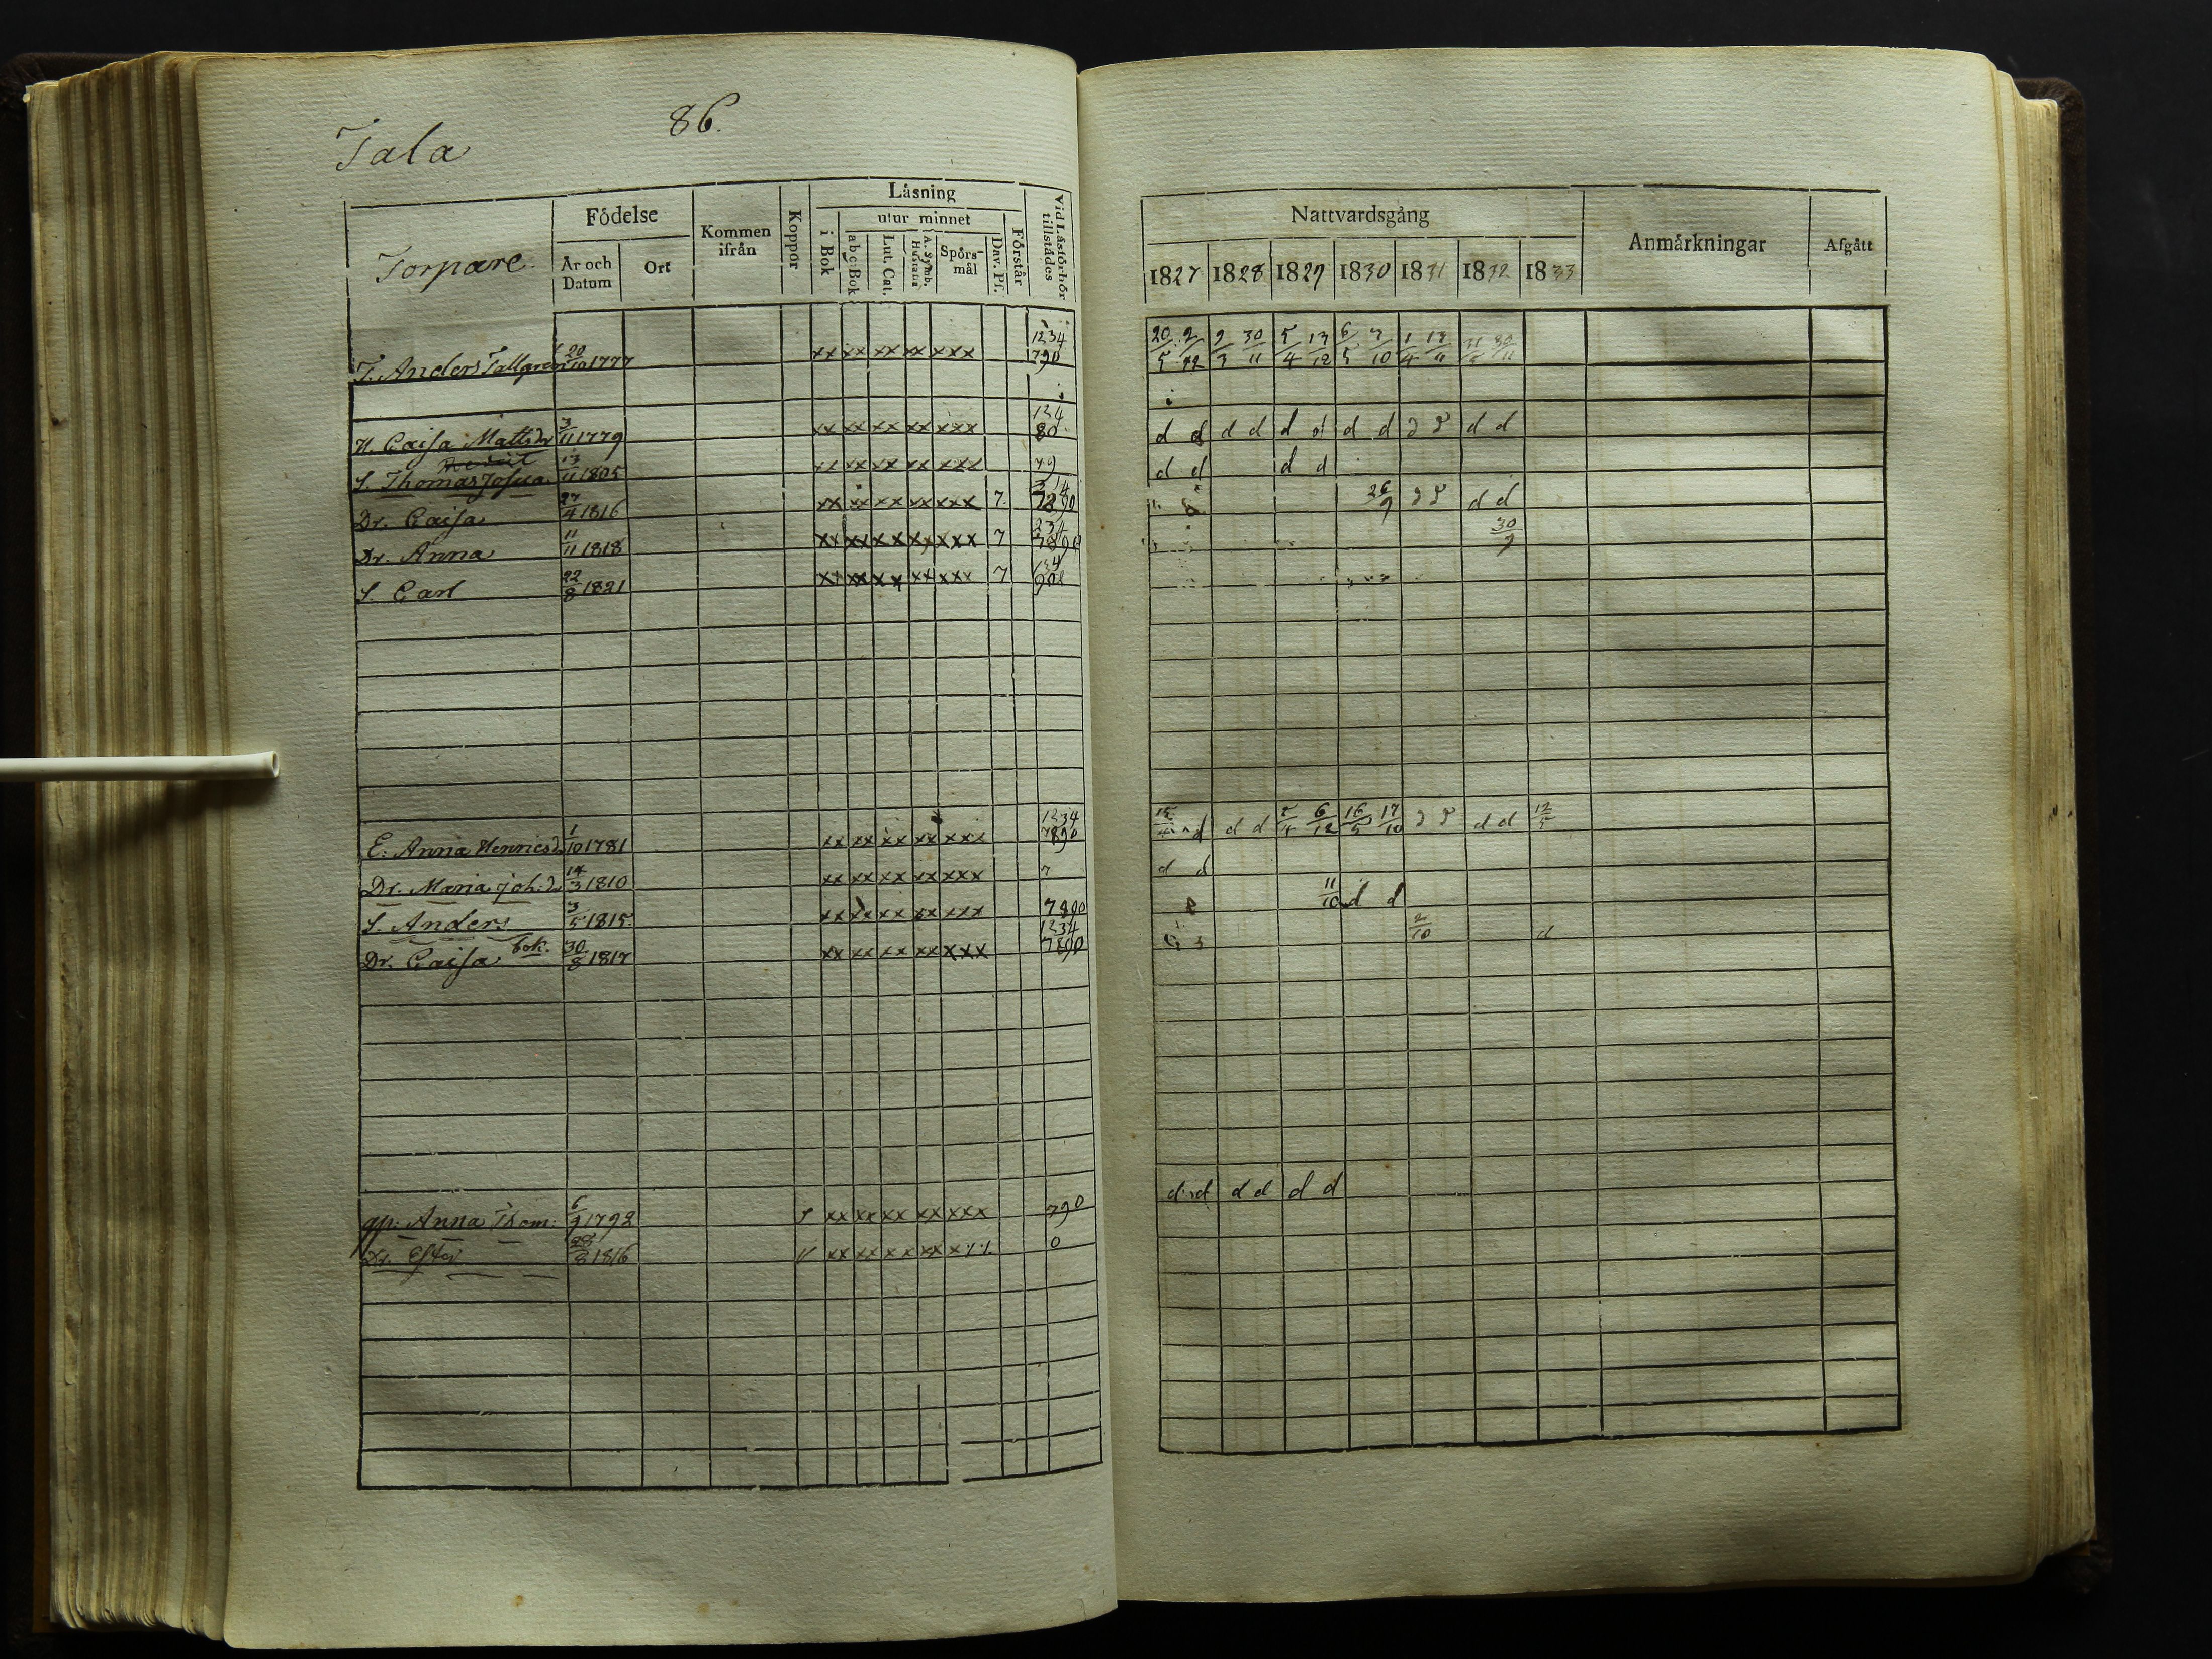 86.
Tala
Torpare.
Födelse
År och Datum
Ort
Kommen ifrån
Koppor
Läsning
utur minnet
i Bok
abc Bok
Lut. Cat.
A. Symb. Hustafla
Spörs-mål
Dav. Ps.
Förstår
Vid Läsförhör tillstädes
Nattvardsgång
1827 1828 1829 1830 1831 1832 1833
Anmärkningar
Afgått
T. Anders Tallgren 20/10 1777 xx xx xx xx xxx 1234 790 20/5 2/12 9/3 30/11 5/4 13/12 6/5 3/10 1/4 13/11 30/11
H. Caisa Mattsdr 3/11 1779 xx xx xx xx xxx 134 80 d d d d d d d d d d
S. Thomas Josua 13/11 1805 xx xx xx xx xxx 79 d d d d
Dr. Caisa 27/4 1816 xx xx xx xx xxx 7. 7890 26/9 d d
Dr. Anna 11/11 1818 xx xx xx xx xxx 7 234 7890 30/9
S. Carl 22/8 1821 xx xx xx xx xxx 7 134 908
E. Anna Henricsd 1/10 1781 xx xx xx xx xxx 1234 7890 d d d 5/4 6/12 16/5 17/10 d d 12/5
Dr. Maria Joh:d 14/3 1810 xx xx xx xx xxx 7 d d
S. Anders 3/5 1815. xx xx xx xx xxx 7890 11/10 d d
Dr. Caisa bok. 30/8 1817 xx xx xx xx xxx 1234 7890 2/10 d
gp: Anna Thom: 6/9 1792 xx xx xx xx xxx 790 d d d d d d
Dr. Ester 28/3 1816 xx xx x x xx x 0